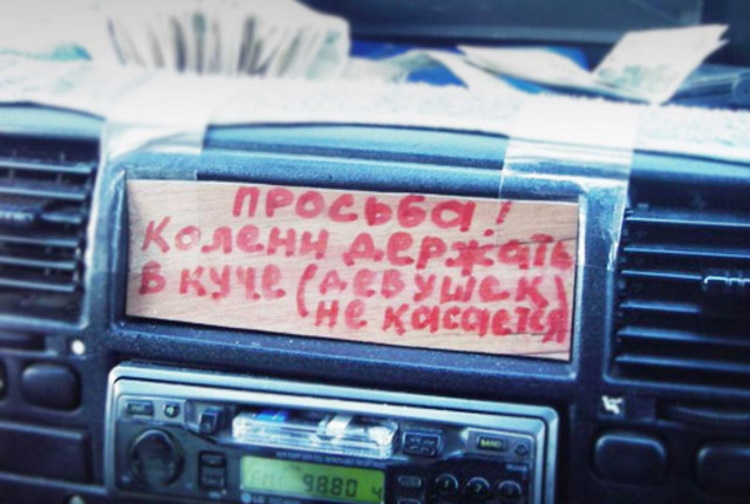 ПРОСЬБА!
КОЛЕНИ ДЕРЖАТЬ
В КУЧЕ (ДЕВУШЕК)
НЕ КАСАЕТСЯ
BAND
FM1 98.80 4